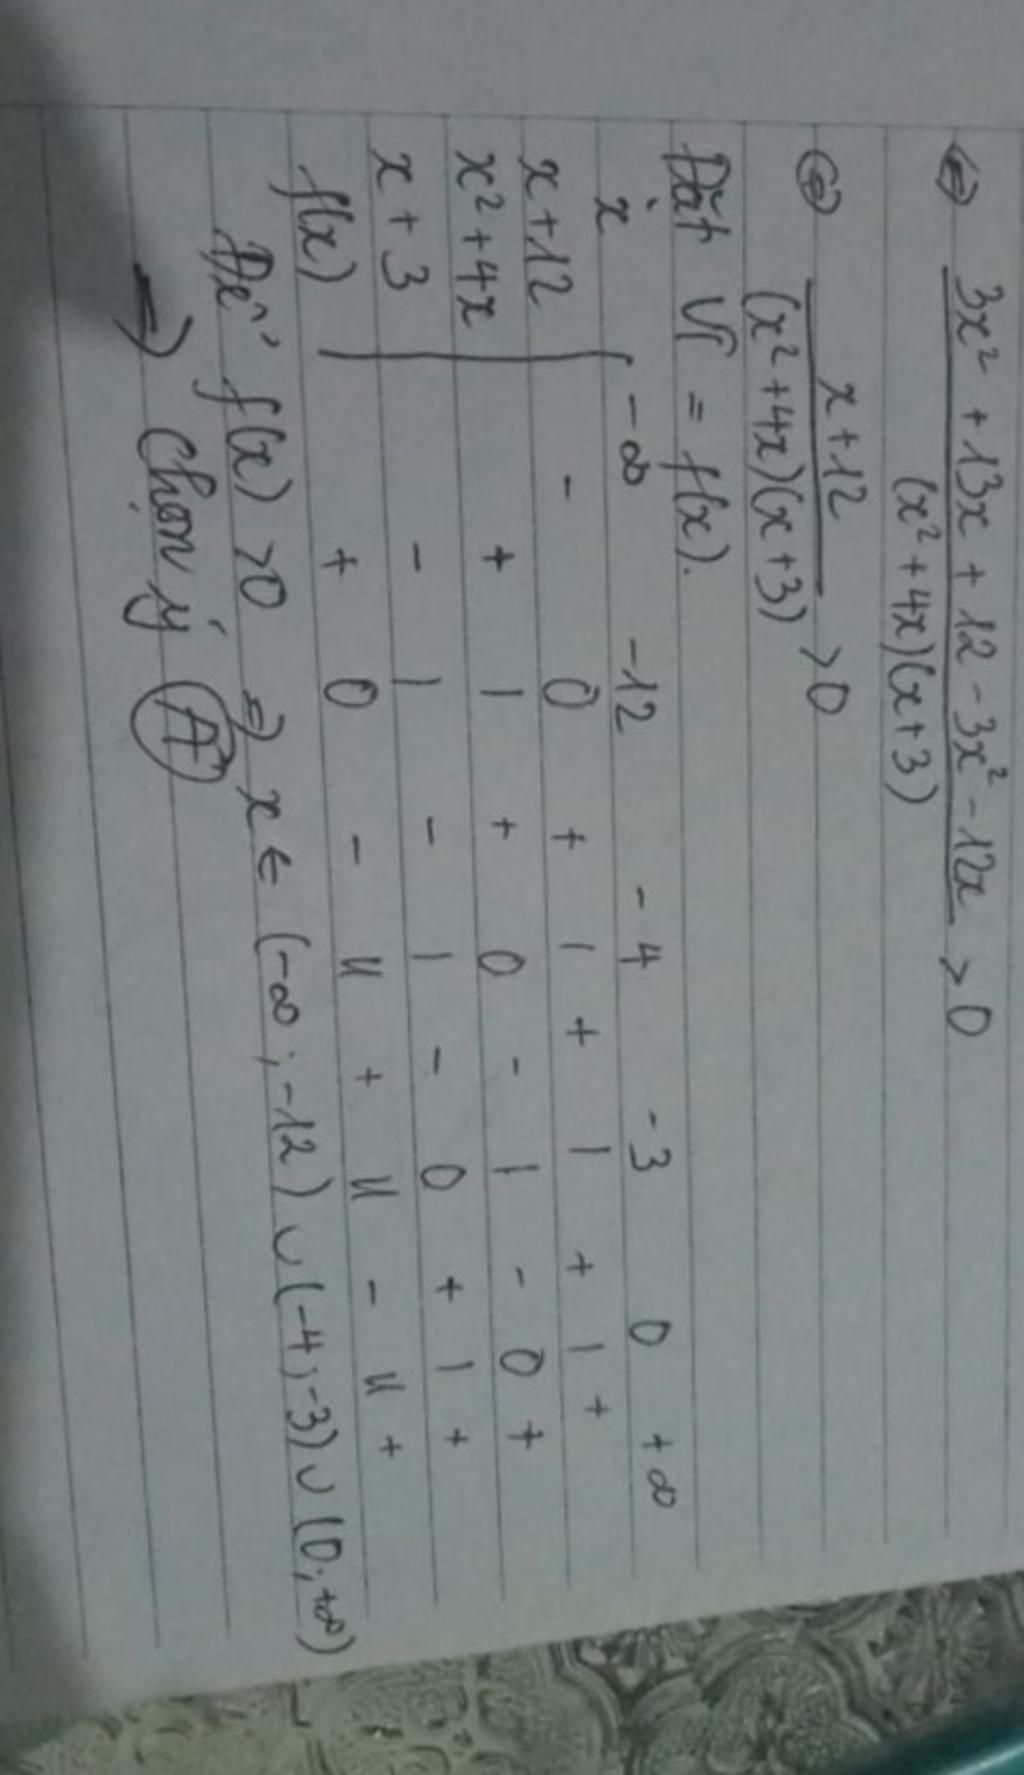 ⇔ 3x² + 13x + 12 - 3x² - 12x > 0
(x² + 4x)(x + 3)
⇔ x + 12 > 0
(x² + 4x)(x + 3)
Đặt VT = f(x).
x -∞ -12 -4 -3 0 +∞
x + 12 - 0 + | + | + | +
x² + 4x + | + 0 - | - 0 +
x + 3 - | - | - 0 + | +
f(x) + 0 - || + || - || +
Để f(x) > 0 ⇒ x ∈ (-∞; -12) ∪ (-4; -3) ∪ (0; +∞)
⇒ Chọn ý A